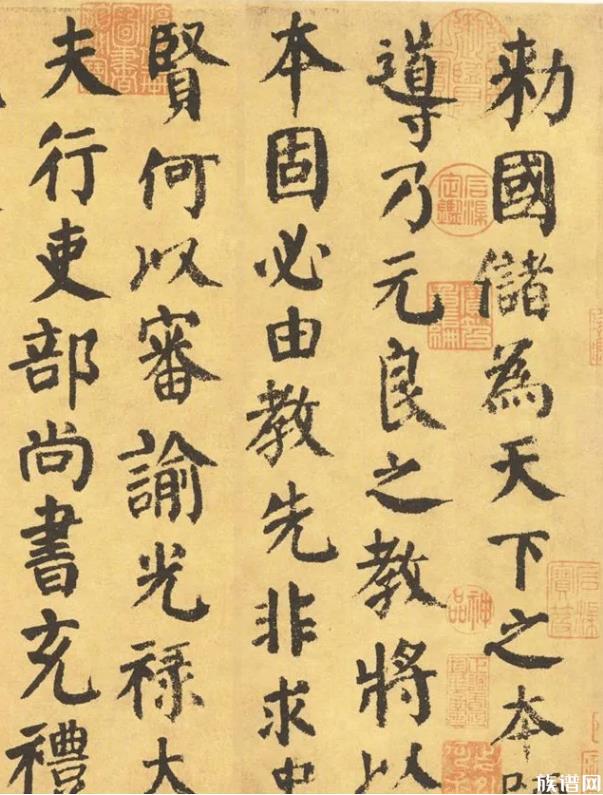 勑國儲為天下之本
導乃元良之教將以
本固必由教先非求中
賢何以審諭光祿大
夫行吏部尚書充禮
神品
族谱网